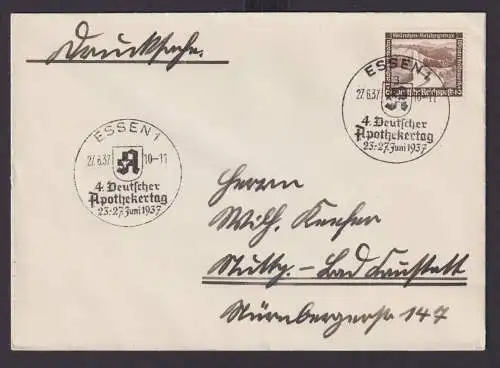 Drucksache.
München-Reichsgrenze
Deutsche Reichspost
ESSEN 1
27.6.37 10-11
4. Deutscher
Apothekertag
23.-27. Juni 1937
ESSEN 1
27.6.37 10-11
4. Deutscher
Apothekertag
23.-27. Juni 1937
Herrn
Wilh.
Stuttg. - Bad Cannstatt
Nürnbergerstr 147